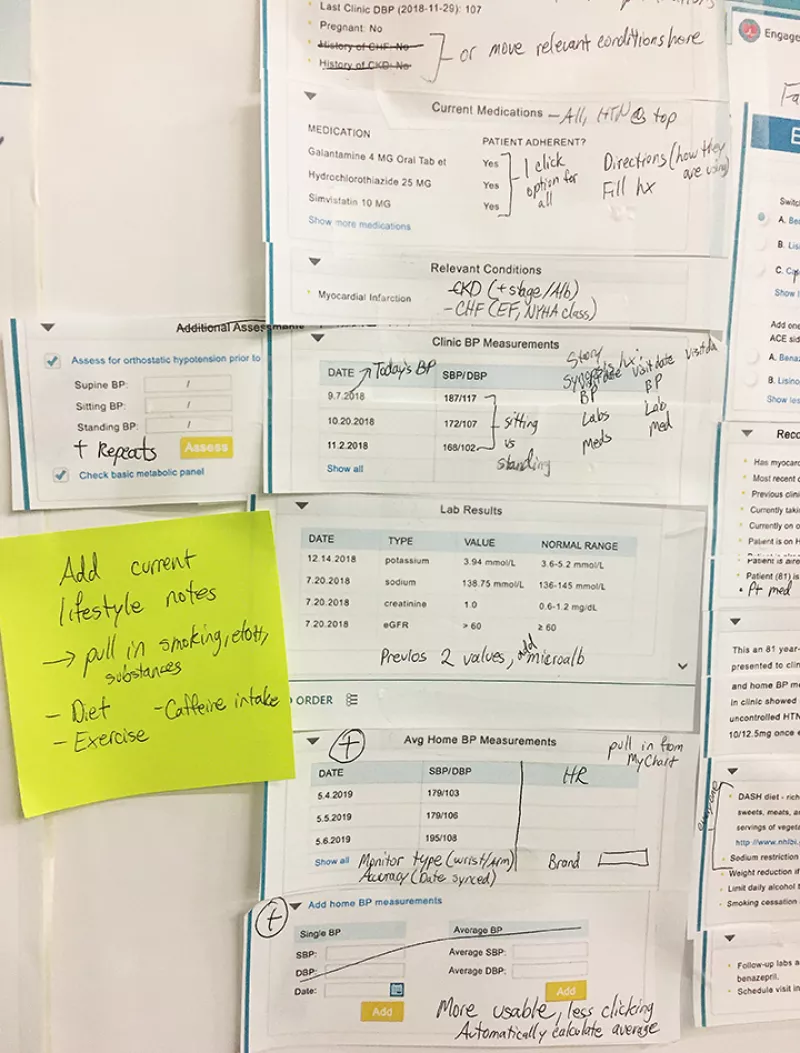 Last Clinic DBP (2018-11-29): 107
Pregnant: No
History of CHF: No
History of CKD: No
or move relevant conditions here
Current Medications
- All, HTN @ top
MEDICATION PATIENT ADHERENT?
Galantamine 4 MG Oral Tab et Yes
Hydrochlorothiazide 25 MG Yes
Simvistatin 10 MG Yes
Show more medications
1 click
option for
all
Directions (how they
are using)
Fill hx
Relevant Conditions
Myocardial Infarction
- CKD (+stage/Alb)
- CHF (EF, NYHA class)
Additional Assessments
Assess for orthostatic hypotension prior to
Supine BP: /
Sitting BP: /
Standing BP: /
+ Repeats
Assess
Check basic metabolic panel
Clinic BP Measurements
DATE SBP/DBP
Today's BP
9.7.2018 187/117
10.20.2018 172/107
11.2.2018 168/102
Show all
sitting
vs
standing
Story
visit date
BP BP
Labs Lab
Meds med
Lab Results
DATE TYPE VALUE NORMAL RANGE
12.14.2018 potassium 3.94 mmol/L 3.6-5.2 mmol/L
7.20.2018 sodium 138.75 mmol/L 136-145 mmol/L
7.20.2018 creatinine 1.0 0.6-1.2 mg/dL
7.20.2018 eGFR > 60 ≥ 60
Previos 2 values, add microalb
ORDER
Add current
lifestyle notes
→ pull in smoking, etoh,
substances
- Diet - Caffeine intake
- Exercise
+
Avg Home BP Measurements
pull in from
MyChart
DATE SBP/DBP HR
5.4.2019 179/103
5.5.2019 179/106
5.6.2019 195/108
Show all
Monitor type (wrist/Arm) Brand
Accuracy (Date synced)
+
Add home BP measurements
Single BP Average BP
SBP: Average SBP:
DBP: Average DBP:
Date:
Add Add
More usable, less clicking
Automatically calculate average
Engage
E
Switc
A. Be
B. Lis
C. Ca
Show l
Add one
ACE sid
A. Bena
B. Lisino
Show les
Reco
Has myocar
Most recent c
Previous clini
Currently takin
Currently on o
Patient is on H
Patient is aler
Patient (81) is
Pt med
This an 81 year-
presented to clin
and home BP m
In clinic showed
uncontrolled HTN
10/12.5mg once e
everyone
DASH diet - rich
sweets, meats, a
servings of veget
http://www.nhlbi.
Sodium restriction
Weight reduction if
Limit daily alcohol t
Smoking cessation
Follow-up labs a
benazepril.
Schedule visit in